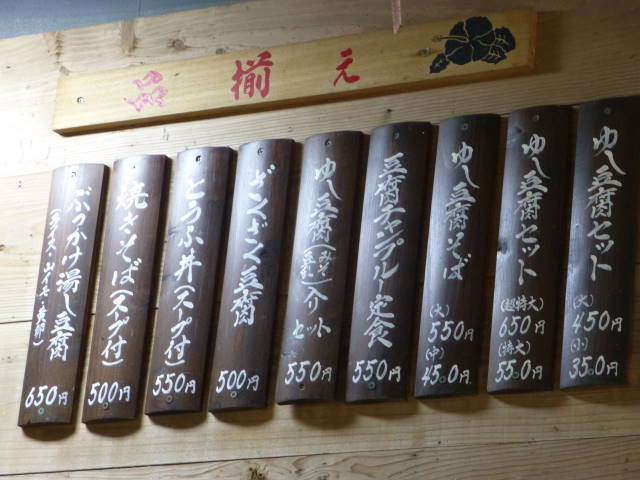 品揃え
ゆし豆腐セット
(大)
450円
(小)
350円
ゆし豆腐セット
(超特大)
650円
(特大)
550円
ゆし豆腐そば
(大)
550円
(中)
450円
豆腐チャンプルー定食
550円
ゆし豆腐(みそ豆乳)入り
セット
550円
ざくざく豆腐
500円
とうふ丼(スープ付)
550円
焼きそば(スープ付)
500円
ぶっかけ湯し豆腐
(ライス・山イモ・黄卵)
650円